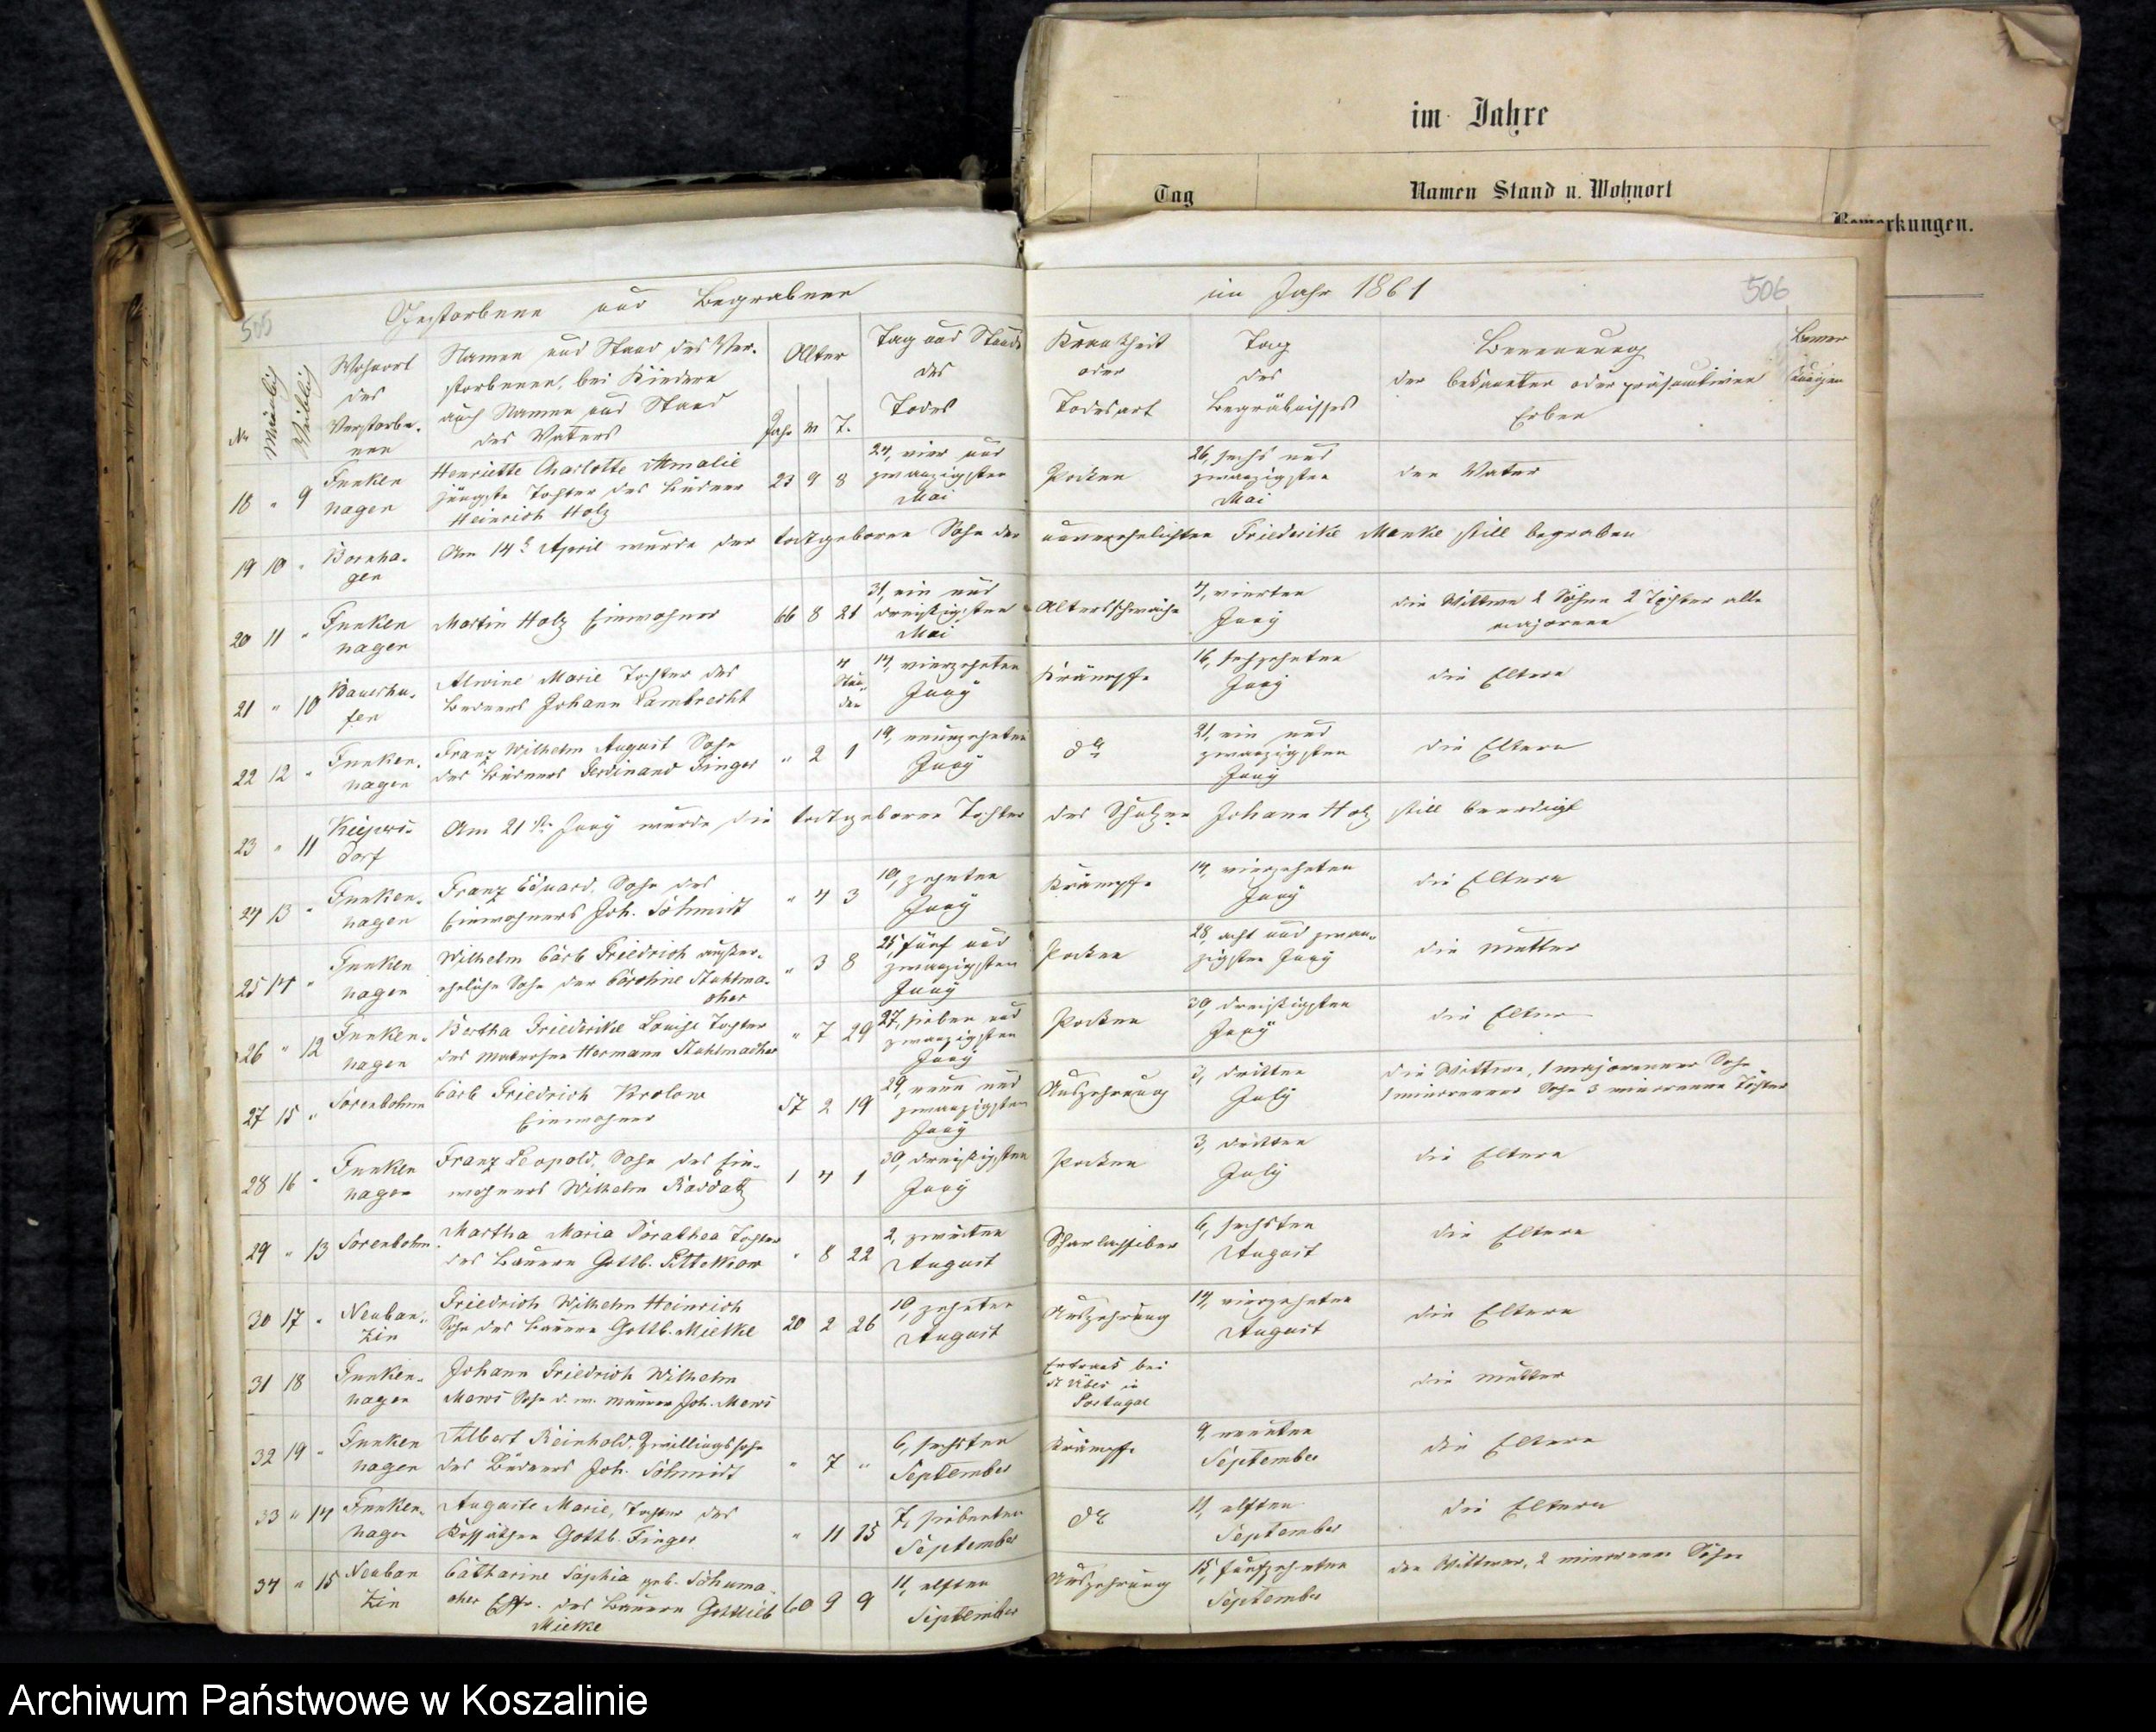 im Jahre
Tag
Namen Stand u. Wohnort
Bemerkungen.
505
Gestorbene und Begrabene
im Jahr 1861
506
No
Männlich
Weiblich
Wohnort
des
Verstorbe-
nen
Namen und Stand des Ver-
storbenen, bei Kindern
auch Namen und Stand
des Vaters
Alter
Jahr M T.
Tag und Stunde
des
Todes
Krankheit
oder
Todesart
Tag
des
Begräbnisses
Benennung
der bekannten oder präsumtiven
Erben
Bemer
kungen
18 " 9
Funken
hagen
Henriette Charlotte Amalie
jüngste Tochter des Büdner
Heinrich Holz
23 9 8
24, vier und
zwanzigsten
Mai
Pocken
26, sechs und
zwanzigsten
Mai
den Vater
19 10 "
Bornha-
gen
Am 14t April wurde der todtgeborne Sohn der unverehelichten Friederike Manke still begraben
20 11 "
Funken
hagen
Martin Holz Einwohner
66 8 21
31, ein und
dreißigsten
Mai
Altersschwäche
4, vierten
Juny
die Wittwe 2 Söhne 2 Töchter alle
majorenn
21 " 10
Bauerhu-
fen
Alwine Marie Tochter des
Büdners Johann Lambrecht
4
Stun-
den
14, vierzehnten
Juny
Krämpfe
16, sechzehnten
Juny
die Eltern
22 12 "
Funken-
hagen
Franz Wilhelm August Sohn
des Büdners Ferdinand Finger
" 2 1
19, neunzehnten
Juny
do
21, ein und
zwanzigsten
Juny
die Eltern
23 " 11
Kiepers-
dorf
Am 21st Juny wurde die todtgeborne Tochter des Schulzen Johann Holz still beerdigt
24 13 "
Funken-
hagen
Franz Eduard, Sohn des
Einwohners Joh. Schmidt
" 4 3
10, zehnten
Juny
Krämpfe
14, vierzehnten
Juny
die Eltern
25 14 "
Funken
hagen
Wilhelm Carl Friedrich außer-
eheliche Sohn der Caroline Stuhlma-
cher
" 3 8
25, fünf und
zwanzigsten
Juny
Pocken
28, acht und zwan-
zigsten Juny
die Mutter
26 " 12
Funken-
hagen
Bertha Friederike Louise Tochter
des Matrosen Hermann Stuhlmacher
" 7 29
27, sieben und
zwanzigsten
Juny
Pocken
30, dreißigsten
Juny
die Eltern
27 15 "
Sorenbohm
Carl Friedrich Krolow
Einwohner
57 2 19
29, neun und
zwanzigsten
Juny
Auszehrung
3, dritten
July
die Wittwe, 1 majorenner Sohn
1 minorenner Sohn 3 minorenne Töchter
28 16 "
Funken
hagen
Franz Leopold, Sohn des Ein-
wohners Wilhelm Raddatz
1 4 1
30, dreißigsten
Juny
Pocken
3, dritten
July
die Eltern
29 " 13
Sorenbohm
Martha Maria Dorathea Tochter
des Bauern Gottl.
" 8 22
2, zweiten
August
Scharlachfieber
6, sechsten
August
die Eltern
30 17 "
Neuban-
zin
Friedrich Wilhelm Heinrich
Sohn des Bauern Gottl. Mielke
20 2 26
10, zehnten
August
Auszehrung
14, vierzehnten
August
die Eltern
31 18
Funken-
hagen
Johann Friedrich Wilhelm
Mews Sohn d. w. Maurer Joh. Mews
Ertrank bei
St Ubes in
Portugal
die Mutter
32 19 "
Funken
hagen
Albert Reinhold, Zwillingssohn
des Büdners Joh. Schmidt
" 7 "
6, sechsten
September
Krämpfe
9, neunten
September
die Eltern
33 " 14
Funken-
hagen
Auguste Marie, Tochter des
Kossäthen Gottl. Finger
" 11 15
7, siebenten
September
do
11, elften
September
die Eltern
34 " 15
Neuban
zin
Catharine Sophia geb. Schuma-
cher Ehfr. des Bauern Gottlieb
Mielke
60 9 9
11, elften
September
Auszehrung
15, fünfzehnten
September
den Wittwer, 2 minorenne Söhne
Archiwum Państwowe w Koszalinie